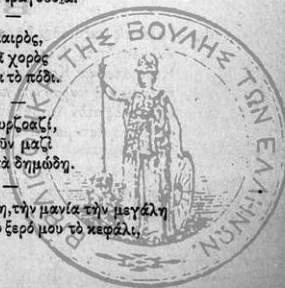 αιρός,
χορὸς
τὸ πόδι.
υρζοαζί,
ῦν μαζὶ
ὰ δημώδη.
η, τὴν μανία τὴν μεγάλη
ξερό μου τὸ κεφάλι,
ΒΙΒΛΙΟΘΗΚΗ ΤΗΣ ΒΟΥΛΗΣ ΤΩΝ ΕΛΛΗΝΩΝ